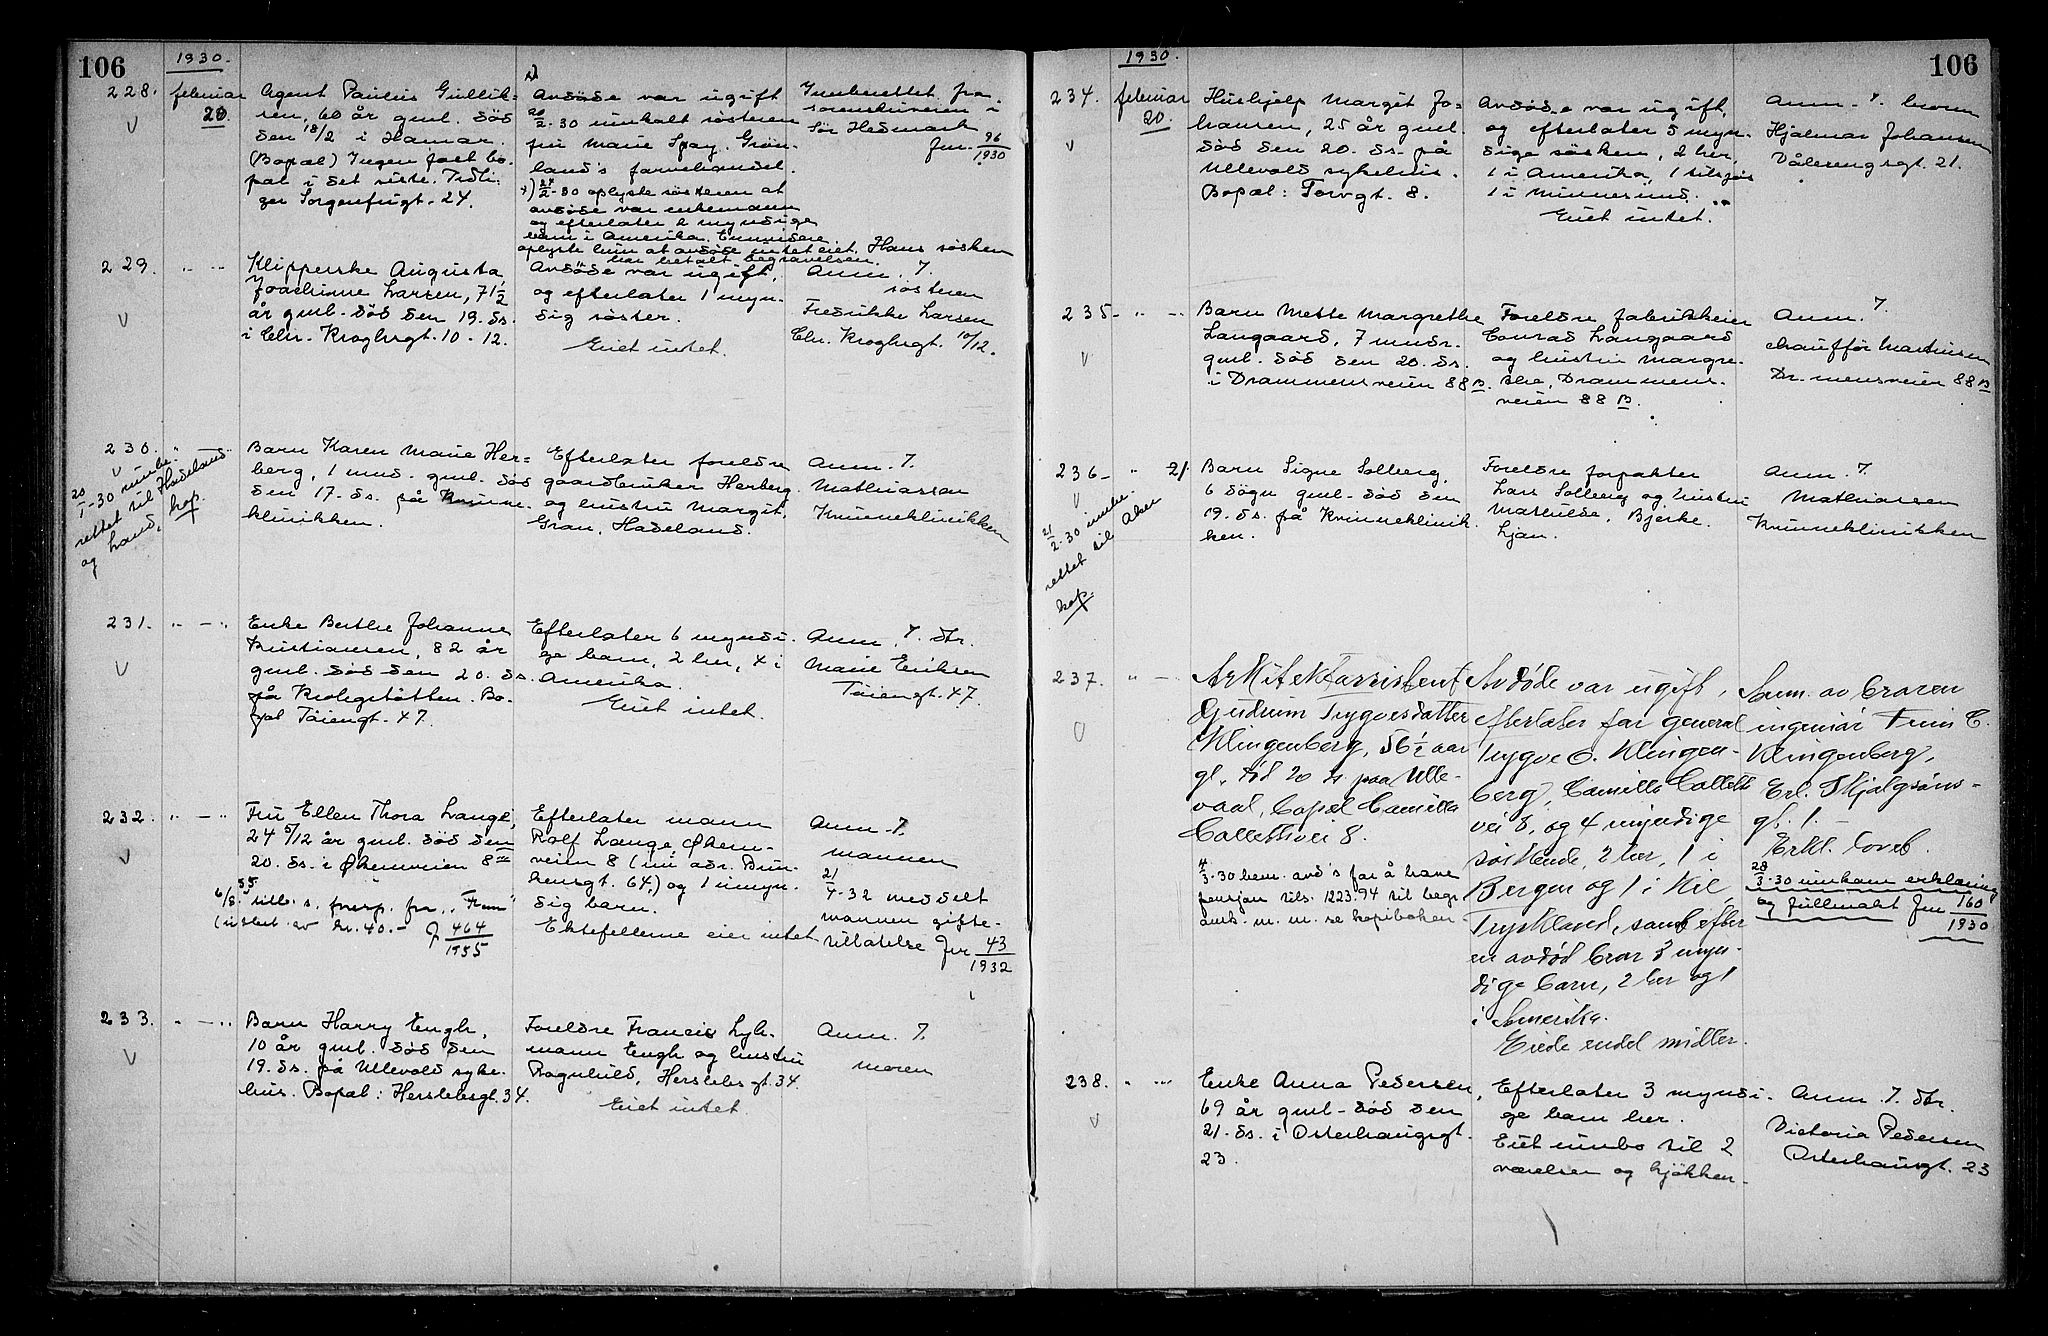 106
1930.
228.
februar
20
Agent Paulus Gullik-
sen, 60 år gml. död
den 18/2 i Hamar.
(Bopæl) Ingen fast bo-
pæl i det siste. Tidli-
ger Sorgenfrigt. 24.
Avdöde var ugift
20/2-30 innkalt sösteren
fru Marie Spay. Grön-
land's farvehandel.
x) 24/2-30 oplyste sösteren at
avdöde var enkemann
og efterlater 2 myndige
barn i Amerika.
oplyste hun at avdöde intet eiet. Hans sösken
har betalt begravelsen.
Innberettet fra
sorenskriveren i
Sör Hedmark
Jnr. 96/1930
229.
" - "
Klipperske Augusta
Joachime Larsen, 71 1/2
år gml. död den 19. ds.
i Chr. Kroghsgt. 10-12.
Avdöde var ugift,
og efterlater 1 myn-
dig söster.
Eiet intet.
Anm. ?.
sösteren
Fredrikke Larsen
Chr. Kroghsgt. 10/12.
230.
20/1-30 innbe-
rettet til Hadeland
og Land, kop.
Barn Karen Marie Her-
berg, 1 mnd. gml. död
den 17. ds. på Kvinne-
klinikken.
Efterlater foreldre
gaardbruker Herberg
og hustru Margit,
Gran, Hadeland.
Anm. ?.
Mathiassen
Kvinneklinikken
231.
" - "
Enke Berthe Johanne
Kristiansen, 82 år
gml. död den 20. ds.
på Krohgstötten. Bo-
pæl Töiengt. 47.
Efterlater 6 myndi-
ge barn, 2 her, 4 i
Amerika.
Eiet intet.
Anm. ?. dtr.
Marie Eriksen
Töiengt. 47.
232.
" - "
Fru Ellen Thora Lange,
24 5/12 år gml. död den
20. ds. i Økernveien 8
6/8.55 utb. s. foresp. fra "Fram"
(utbet. av kr. 40.- J 464/1955
Efterlater mann
Rolf Lange, Økern-
veien 8 (nu adr. Brin-
kensgt. 64.) og 1 umyn-
dig barn.
Ektefellene eier intet.
Anm. ?.
mannen
21/4-32 meddelt
mannen gifte-
tillatelse Jnr 43/1932
233.
" - "
Barn Harry Engh,
10 år gml. död den
19. ds. på Ullevold syke-
hus. Bopæl: Herslebsgt. 34.
Foreldre Francis Lyh-
mann Engh og hustru
Ragnhild, Herslebsgt. 34.
Eiet intet.
Anm. ?.
moren
106
1930.
234.
februar
20.
Hushjelp Margit Jo-
hansen, 25 år gml.
död den 20. ds. på
Ullevold sykehus.
Bopæl: Torvgt. 8.
Avdöde var ugift,
og efterlater 5 myn-
dige sösken, 2 her,
1 i Amerika, 1 tilsjös
1 i Minnesund.
Eiet intet.
Anm. ?. broren
Hjalmar Johansen
Vålerengsgt. 21.
235.
" - "
Barn Mette Margrethe
Langaard, 7 mndr.
gml. död den 20. ds.
i Drammensveien 88 B.
Foreldre fabrikkeier
Conrad Langaard
og hustru Margre-
the, Drammens-
veien 88 B.
Anm. ?.
chaufför Martinsen
Dr. mensveien 88 B
236.
" 21.
21/2-30 innbe-
rettet til Aker
kop.
Barn Signe Solberg,
6 dögn gml. död den
19. ds. på Kvinneklinik-
ken.
Foreldre forpakter
Lars Solberg og hustru
Mathilde, Bjerke.
Ljan.
Anm. ?.
Mathiassen
Kvinneklinikken
237.
" -
Arkitektassistent
Gudrun Trygvesdatter
Klingenberg, 56 1/2 aar
gl. död 20 ds. paa Ulle-
vaal, bopæl Camilla
Collettsvei 8.
4/3-30 bem. avd's far å have
pensjon tils. 1223.94 til begr.
omk. m. m. se kopiboken
Avdöde var ugift,
efterlater far general
Trygve O. Klingen-
berg, Camilla Colletts
vei 8, og 4 myndige
söskende, 2 her, 1 i
Bergen og 1 i Kiel,
Tyskland, samt efter
en avdöd bror 3 myn-
dige barn, 2 her og 1
i Amerika.
Eiede endel midler.
Anm. av broren
ingeniör Finn C.
Klingenberg,
Erl. Skjalgsöns-
gt. 1.
Erkl. lovet.
28/3-30 innkom erklæring
og fullmakt Jnr 160/1930
238.
" - "
Enke Anna Pedersen,
69 år gml. död den
21. ds. i Osterhausgt.
23.
Efterlater 3 myndi-
ge barn her.
Eiet innbo til 2
værelser og kjökken.
Anm. ?. dtr.
Victoria Pedersen
Osterhausgt. 23